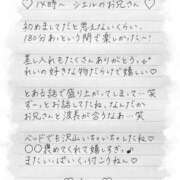 ♡ 1x時〜 シエルのお兄さん ♡
初めましてだと思えないくらい、
180分あっという間で楽しかった〜!
差し入れもたくさんありがとう。
れいの好きな物だらけで嬉しい♡
とある話で盛り上がってしまし〜笑
ずーっとお話してたね、なんだか
お兄さんと波長が合うなあ〜笑
ベッドでも沢山いちゃいちゃしたね♡
〇〇褒めてくれて嬉しすぎ♪
またいっぱいくっ付こうねん♡